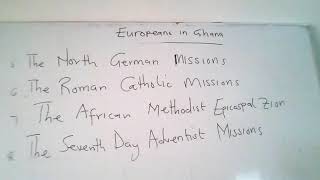 Europeans in Ghana
5 The North German Missions
6 The Roman Catholic Missions
7 The African Methodist Episcopal Zion
8 The Seventh Day Adventist Missions